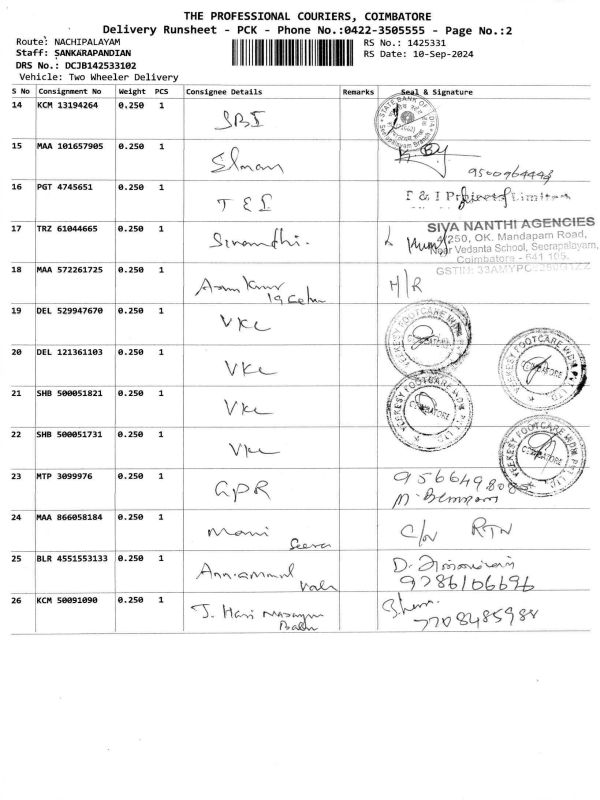 THE PROFESSIONAL COURIERS, COIMBATORE
Delivery Runsheet - PCK - Phone No.:0422-3505555 - Page No.:2
Route: NACHIPALAYAM RS No.: 1425331
Staff: SANKARAPANDIAN RS Date: 10-Sep-2024
DRS No.: DCJB142533102
Vehicle: Two Wheeler Delivery
S No Consignment No Weight PCS Consignee Details Remarks Seal & Signature
14 KCM 13194264 0.250 1 SBI
STATE BANK OF INDIA
15 MAA 101657905 0.250 1
16 PGT 4745651 0.250 1 T & I
T & I Projects Limited
17 TRZ 61044665 0.250 1
SIVA NANTHI AGENCIES
4/250, OK. Mandapam Road,
Near Vedanta School, Seerapalayam,
Coimbatore - 641 105.
18 MAA 572261725 0.250 1 H/R
19 DEL 529947670 0.250 1 VKC
VEEKESY FOOTCARE
COIMBATORE
20 DEL 121361103 0.250 1 VKC
VEEKESY FOOTCARE (INDIA) PVT LTD
COIMBATORE
21 SHB 500051821 0.250 1 VKC
VEEKESY FOOTCARE (INDIA) PVT LTD
COIMBATORE
22 SHB 500051731 0.250 1 VKC
VEEKESY FOOTCARE (INDIA) PVT LTD
COIMBATORE
23 MTP 3099976 0.250 1 GPR
24 MAA 866058184 0.250 1 Mani C/N RTN
25 BLR 4551553133 0.250 1
9786106696
26 KCM 50091090 0.250 1 J. Hari
7708485988